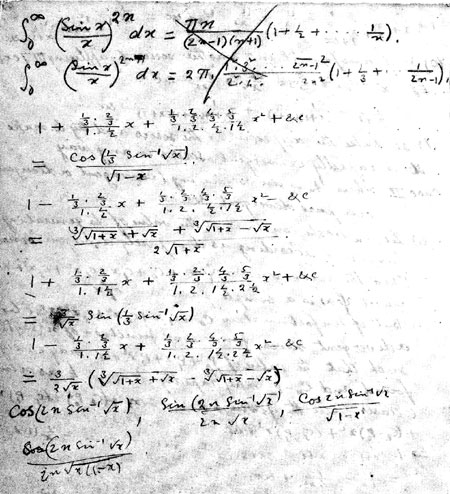 ∫₀^∞ (Sin x / x)^{2n} dx = πn / ((2n-1)(n+1)) (1 + 1/2 + .... 1/n).
∫₀^∞ (Sin x / x) dx = 2π 1.3 ... 2n-1² / 2².4² ... 2n² (1 + 1/3 + .... 1/(2n-1)),
1 + (1/3 . 2/3)/(1 . 1/2) x + (1/3 . 2/3 . 4/3 . 5/3)/(1 . 2 . 1/2 . 1 1/2) x² + &c
= Cos(1/3 Sin⁻¹√x) / √(1-x)
1 - (1/3 . 2/3)/(1 . 1/2) x + (1/3 . 2/3 . 4/3 . 5/3)/(1 . 2 . 1/2 . 1 1/2) x² - &c
= (∛(√(1+x) + √x) + ∛(√(1+x) - √x)) / (2√(1+x))
1 + (1/3 . 2/3)/(1 . 1 1/2) x + (1/3 . 2/3 . 4/3 . 5/3)/(1 . 2 . 1 1/2 . 2 1/2) x² + &c
= 3/√x Sin(1/3 Sin⁻¹√x)
1 - (1/3 . 2/3)/(1 . 1 1/2) x + (1/3 . 2/3 . 4/3 . 5/3)/(1 . 2 . 1 1/2 . 2 1/2) x² - &c
= 3/(2√x) (∛(√(1+x) + √x) - ∛(√(1+x) - √x))
Cos(2n Sin⁻¹√x), Sin(2n Sin⁻¹√x) / (2n√x), Cos 2n Sin⁻¹√x / √(1-x)
Sin(2n Sin⁻¹√x) / (2n√(x(1-x)))